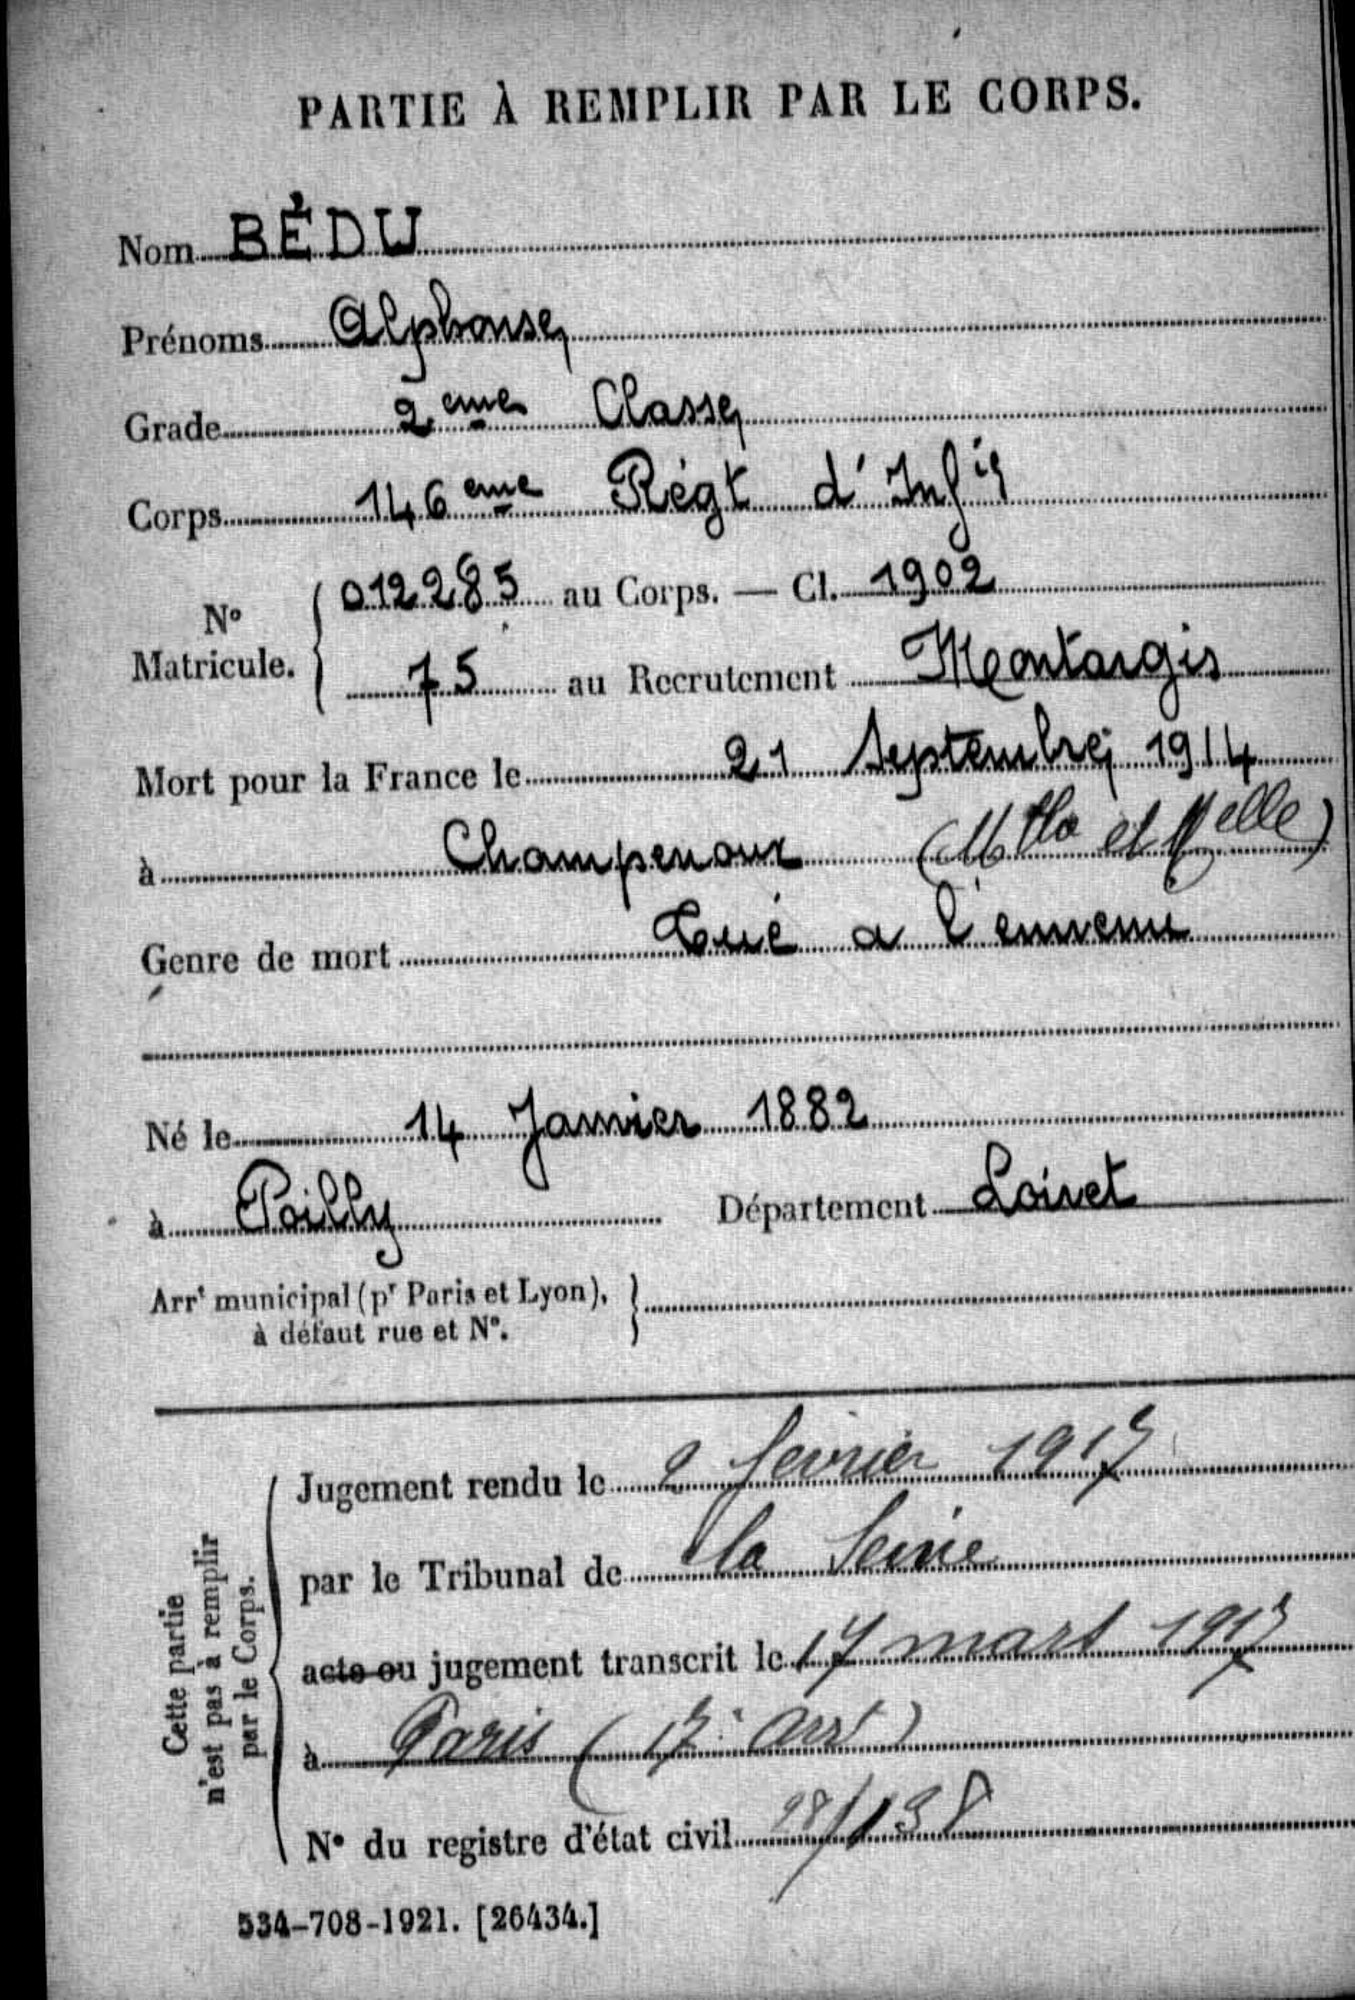 PARTIE À REMPLIR PAR LE CORPS.
Nom BÉDU
Prénoms Alphonse
Grade 2eme Classe
Corps 146eme Régt d'Infie
No
Matricule.
012285 au Corps. — Cl. 1902
75 au Recrutement Montargis
Mort pour la France le 21 Septembre 1914
à Champenoux (Mthe et Melle)
Genre de mort Tué a l'ennemi
Né le 14 Janvier 1882
à Poilly Département Loiret
Arrt municipal (pr Paris et Lyon),
à défaut rue et No.
Cette partie
n'est pas à remplir
par le Corps.
Jugement rendu le 2 février 1917
par le Tribunal de la Seine
acte ou jugement transcrit le 17 mars 1917
à Paris (17e Arrt)
No du registre d'état civil /138
534-708-1921. [26434.]